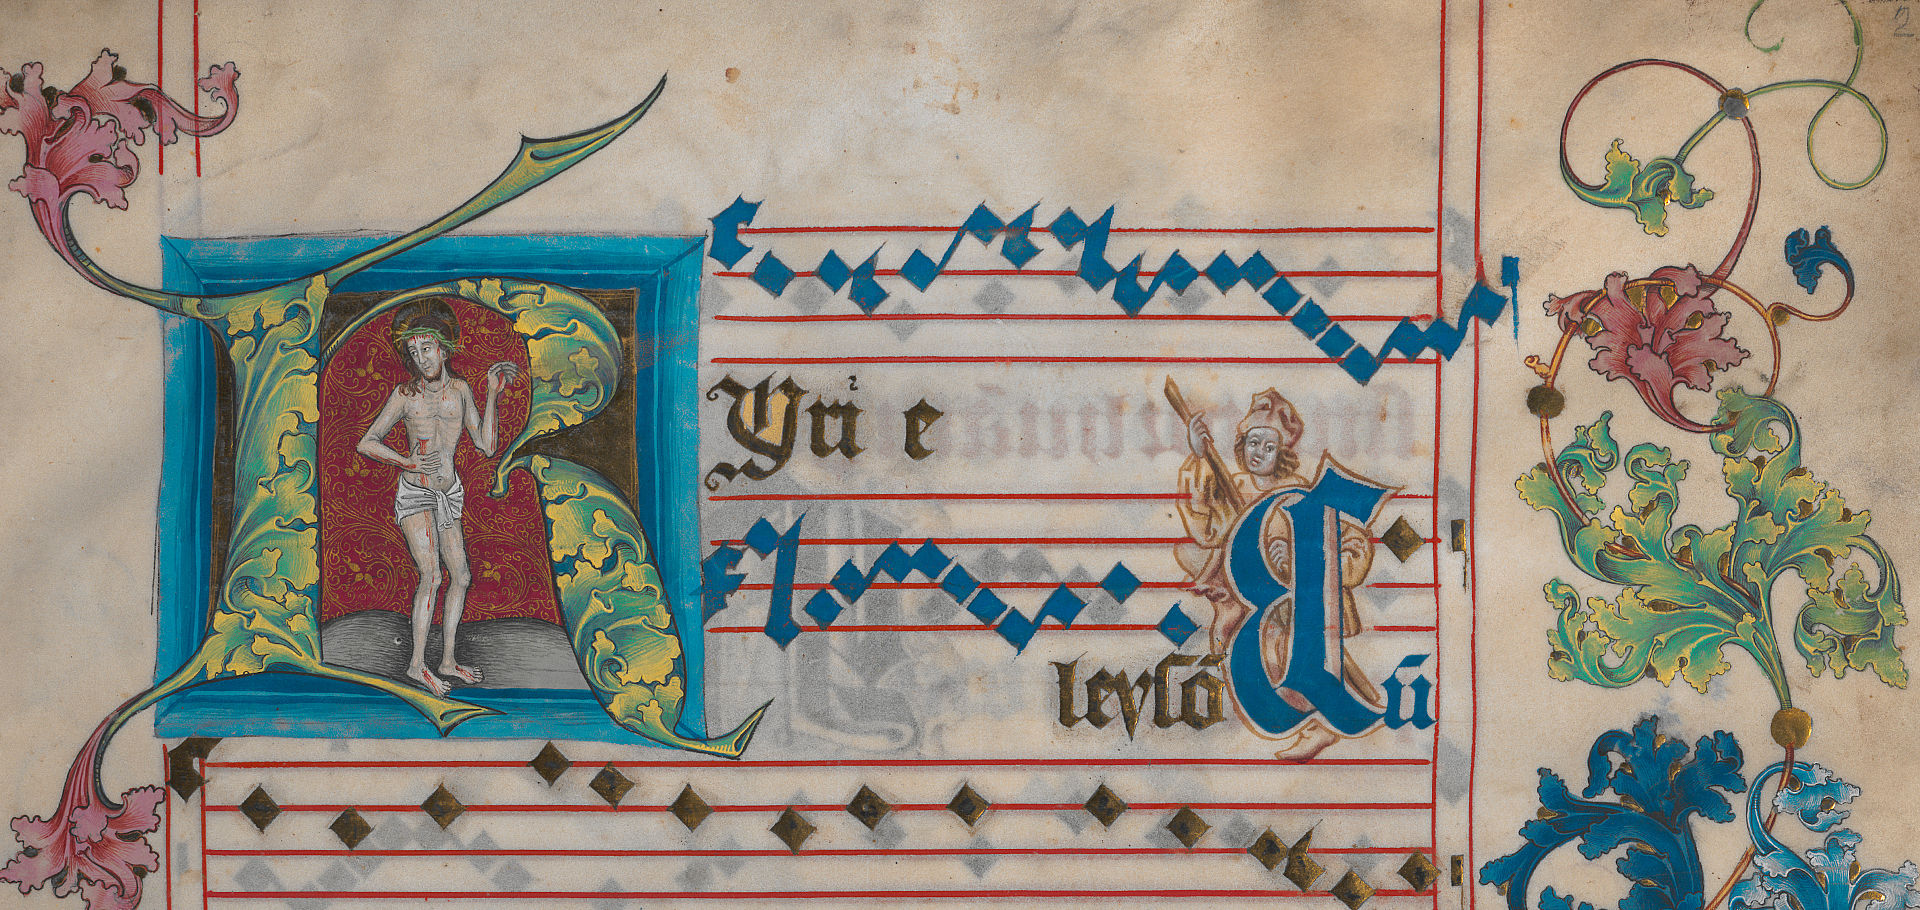 Kyri e
leyſō Cū